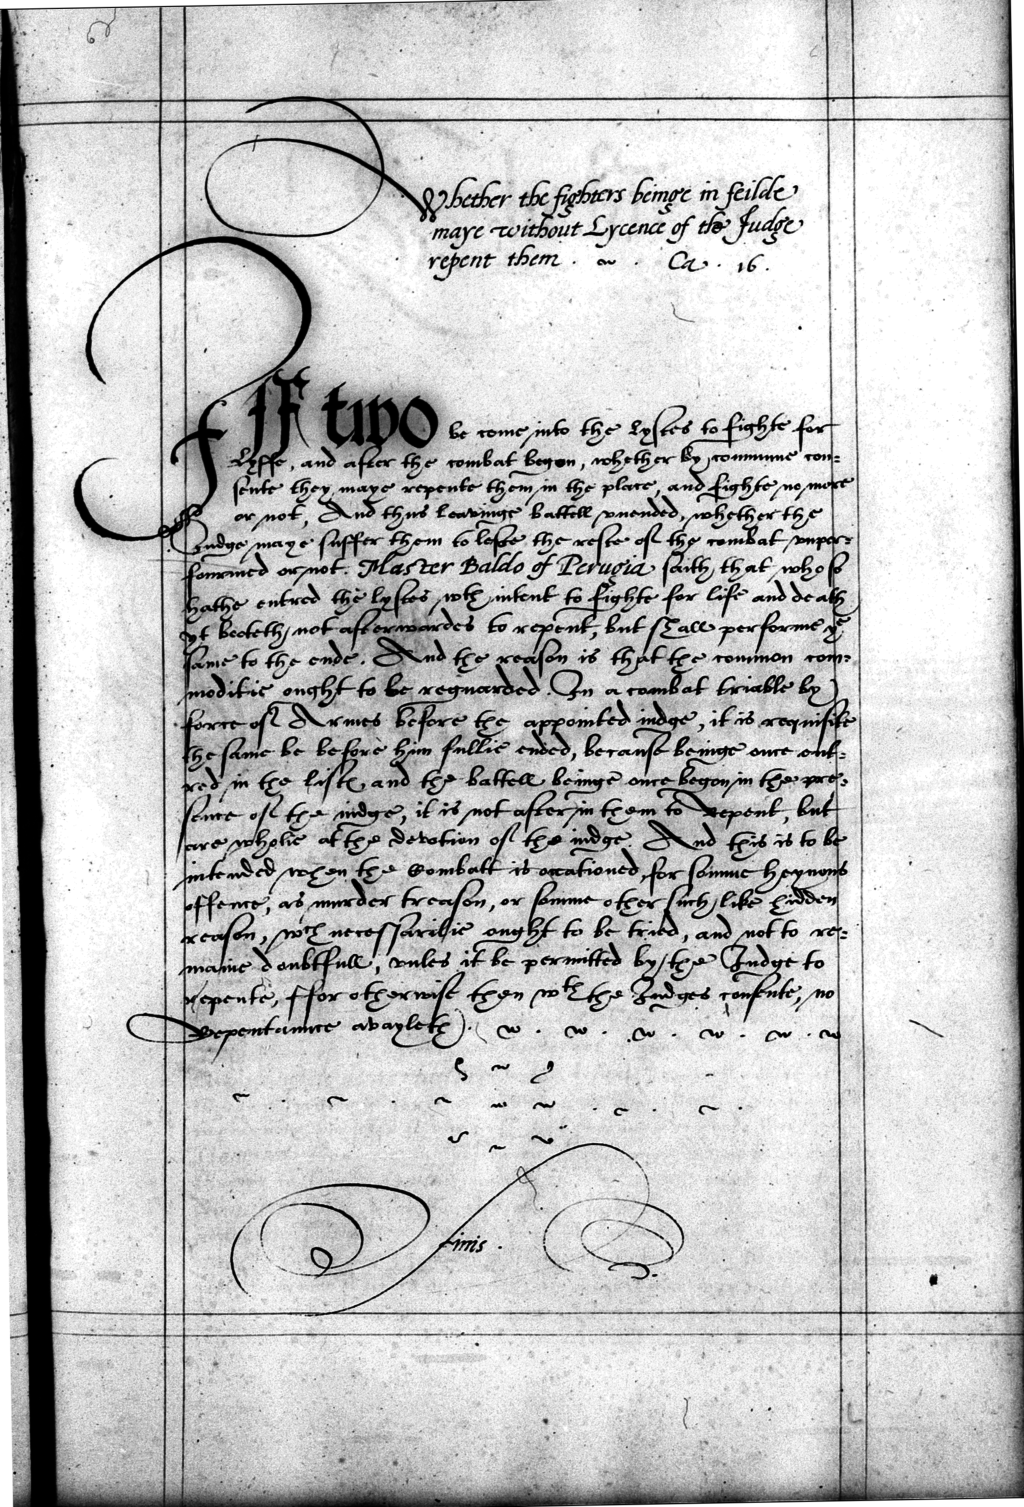 Whether the fighters beinge in feilde
maye without Lycence of the Judge
repent them . Ca . 16 .
Iff two be come into the lystes to fighte for
Lyffe, and after the combat begon, whether by commune con=
sente they maye repente them in the place, and fighte no more
or not, And thus leavinge battell unended, whether the
Judge maye suffer them to leave the reste of the combat unper=
fourmed or not. Master Baldo of Perugia saith, that who so
hathe entred the lystes wth intent to fighte for life and death
yt becometh not afterwardes to repent, but shall performe ye
same to the ende. And the reason is that the common com=
moditie ought to be reguarded. In a combat triable by
force of Armes before the appointed iudge, it is requisite
the same be before him fullie ended, because beinge once ent=
red in the listes and the battell beinge once begon in the pre=
sence of the iudge, it is not after in them to Repent, but
are wholie at the devotion of the iudge. And this is to be
intended when the Combatt is occationed for somme heynous
offence, as murder treason, or somme other such like hidden
reason, wch necessarilie ought to be tried, and not to re=
maine doubtfull, unles it be permitted by the Judge to
repente, ffor otherwise then wth the Judges consente, no
Repentaunce avayleth.
finis .